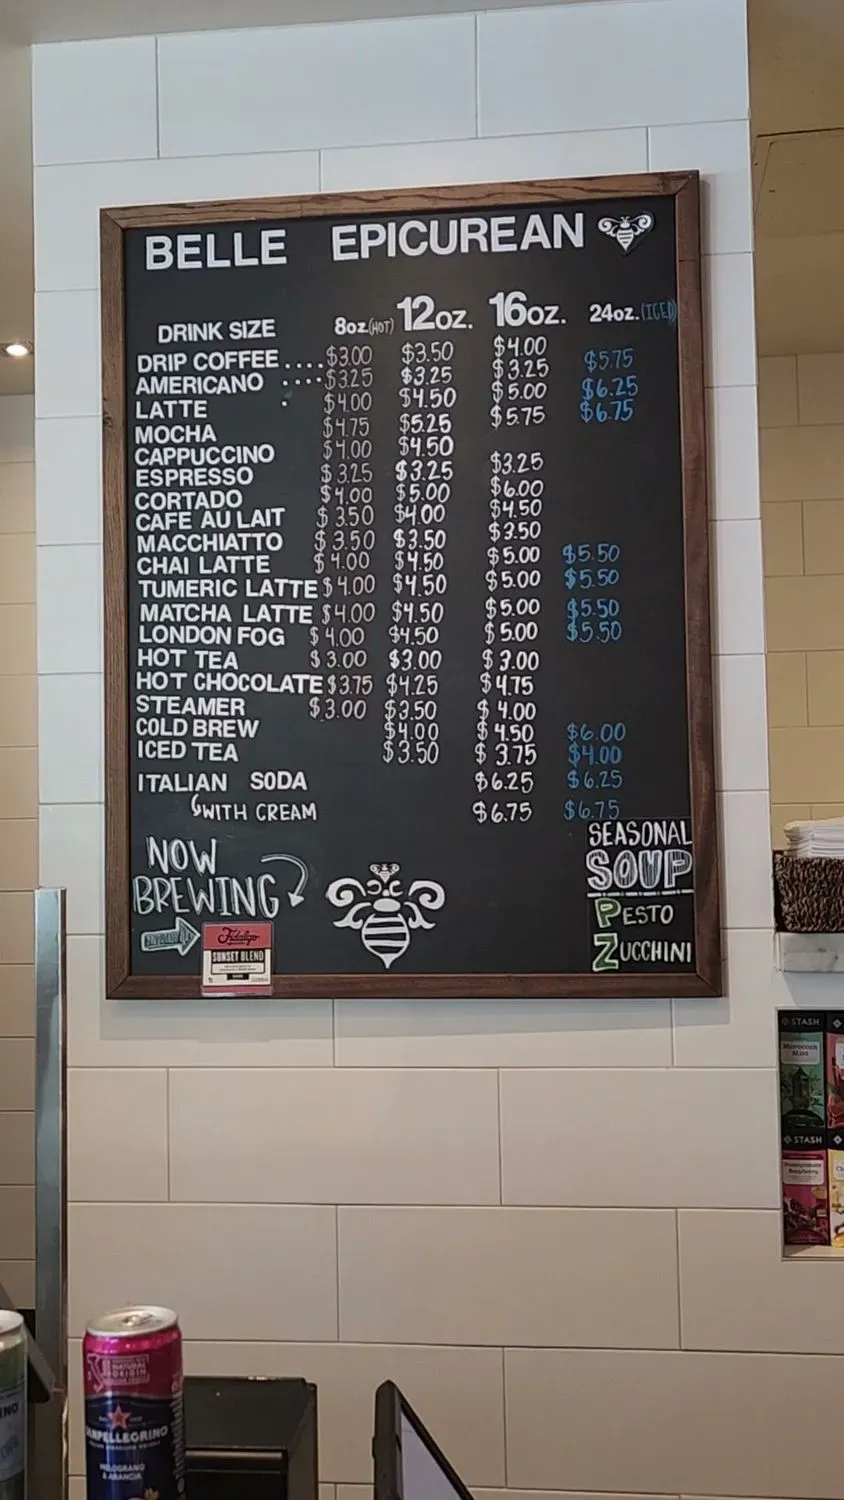 BELLE EPICUREAN
DRINK SIZE 8oz. (HOT) 12oz. 16oz. 24oz. (ICED)
DRIP COFFEE .... $3.00 $3.50 $4.00
AMERICANO .... $3.25 $3.25 $3.25 $5.75
LATTE . $4.00 $4.50 $5.00 $6.25
MOCHA $4.75 $5.25 $5.75 $6.75
CAPPUCCINO $4.00 $4.50
ESPRESSO $3.25 $3.25 $3.25
CORTADO $4.00 $5.00 $6.00
CAFE AU LAIT $3.50 $4.00 $4.50
MACCHIATTO $3.50 $3.50 $3.50
CHAI LATTE $4.00 $4.50 $5.00 $5.50
TUMERIC LATTE $4.00 $4.50 $5.00 $5.50
MATCHA LATTE $4.00 $4.50 $5.00 $5.50
LONDON FOG $4.00 $4.50 $5.00 $5.50
HOT TEA $3.00 $3.00 $3.00
HOT CHOCOLATE $3.75 $4.25 $4.75
STEAMER $3.00 $3.50 $4.00
COLD BREW $4.00 $4.50 $6.00
ICED TEA $3.50 $3.75 $4.00
ITALIAN SODA $6.25 $6.25
WITH CREAM $6.75 $6.75
NOW
BREWING
Fidalgo
SUNSET BLEND
SEASONAL
SOUP
PESTO
ZUCCHINI
STASH
Moroccan
Mint
STASH
Pomegranate
Raspberry
NATURAL
ORIGIN
SANPELLEGRINO
MELOGRANO
& ARANCIA